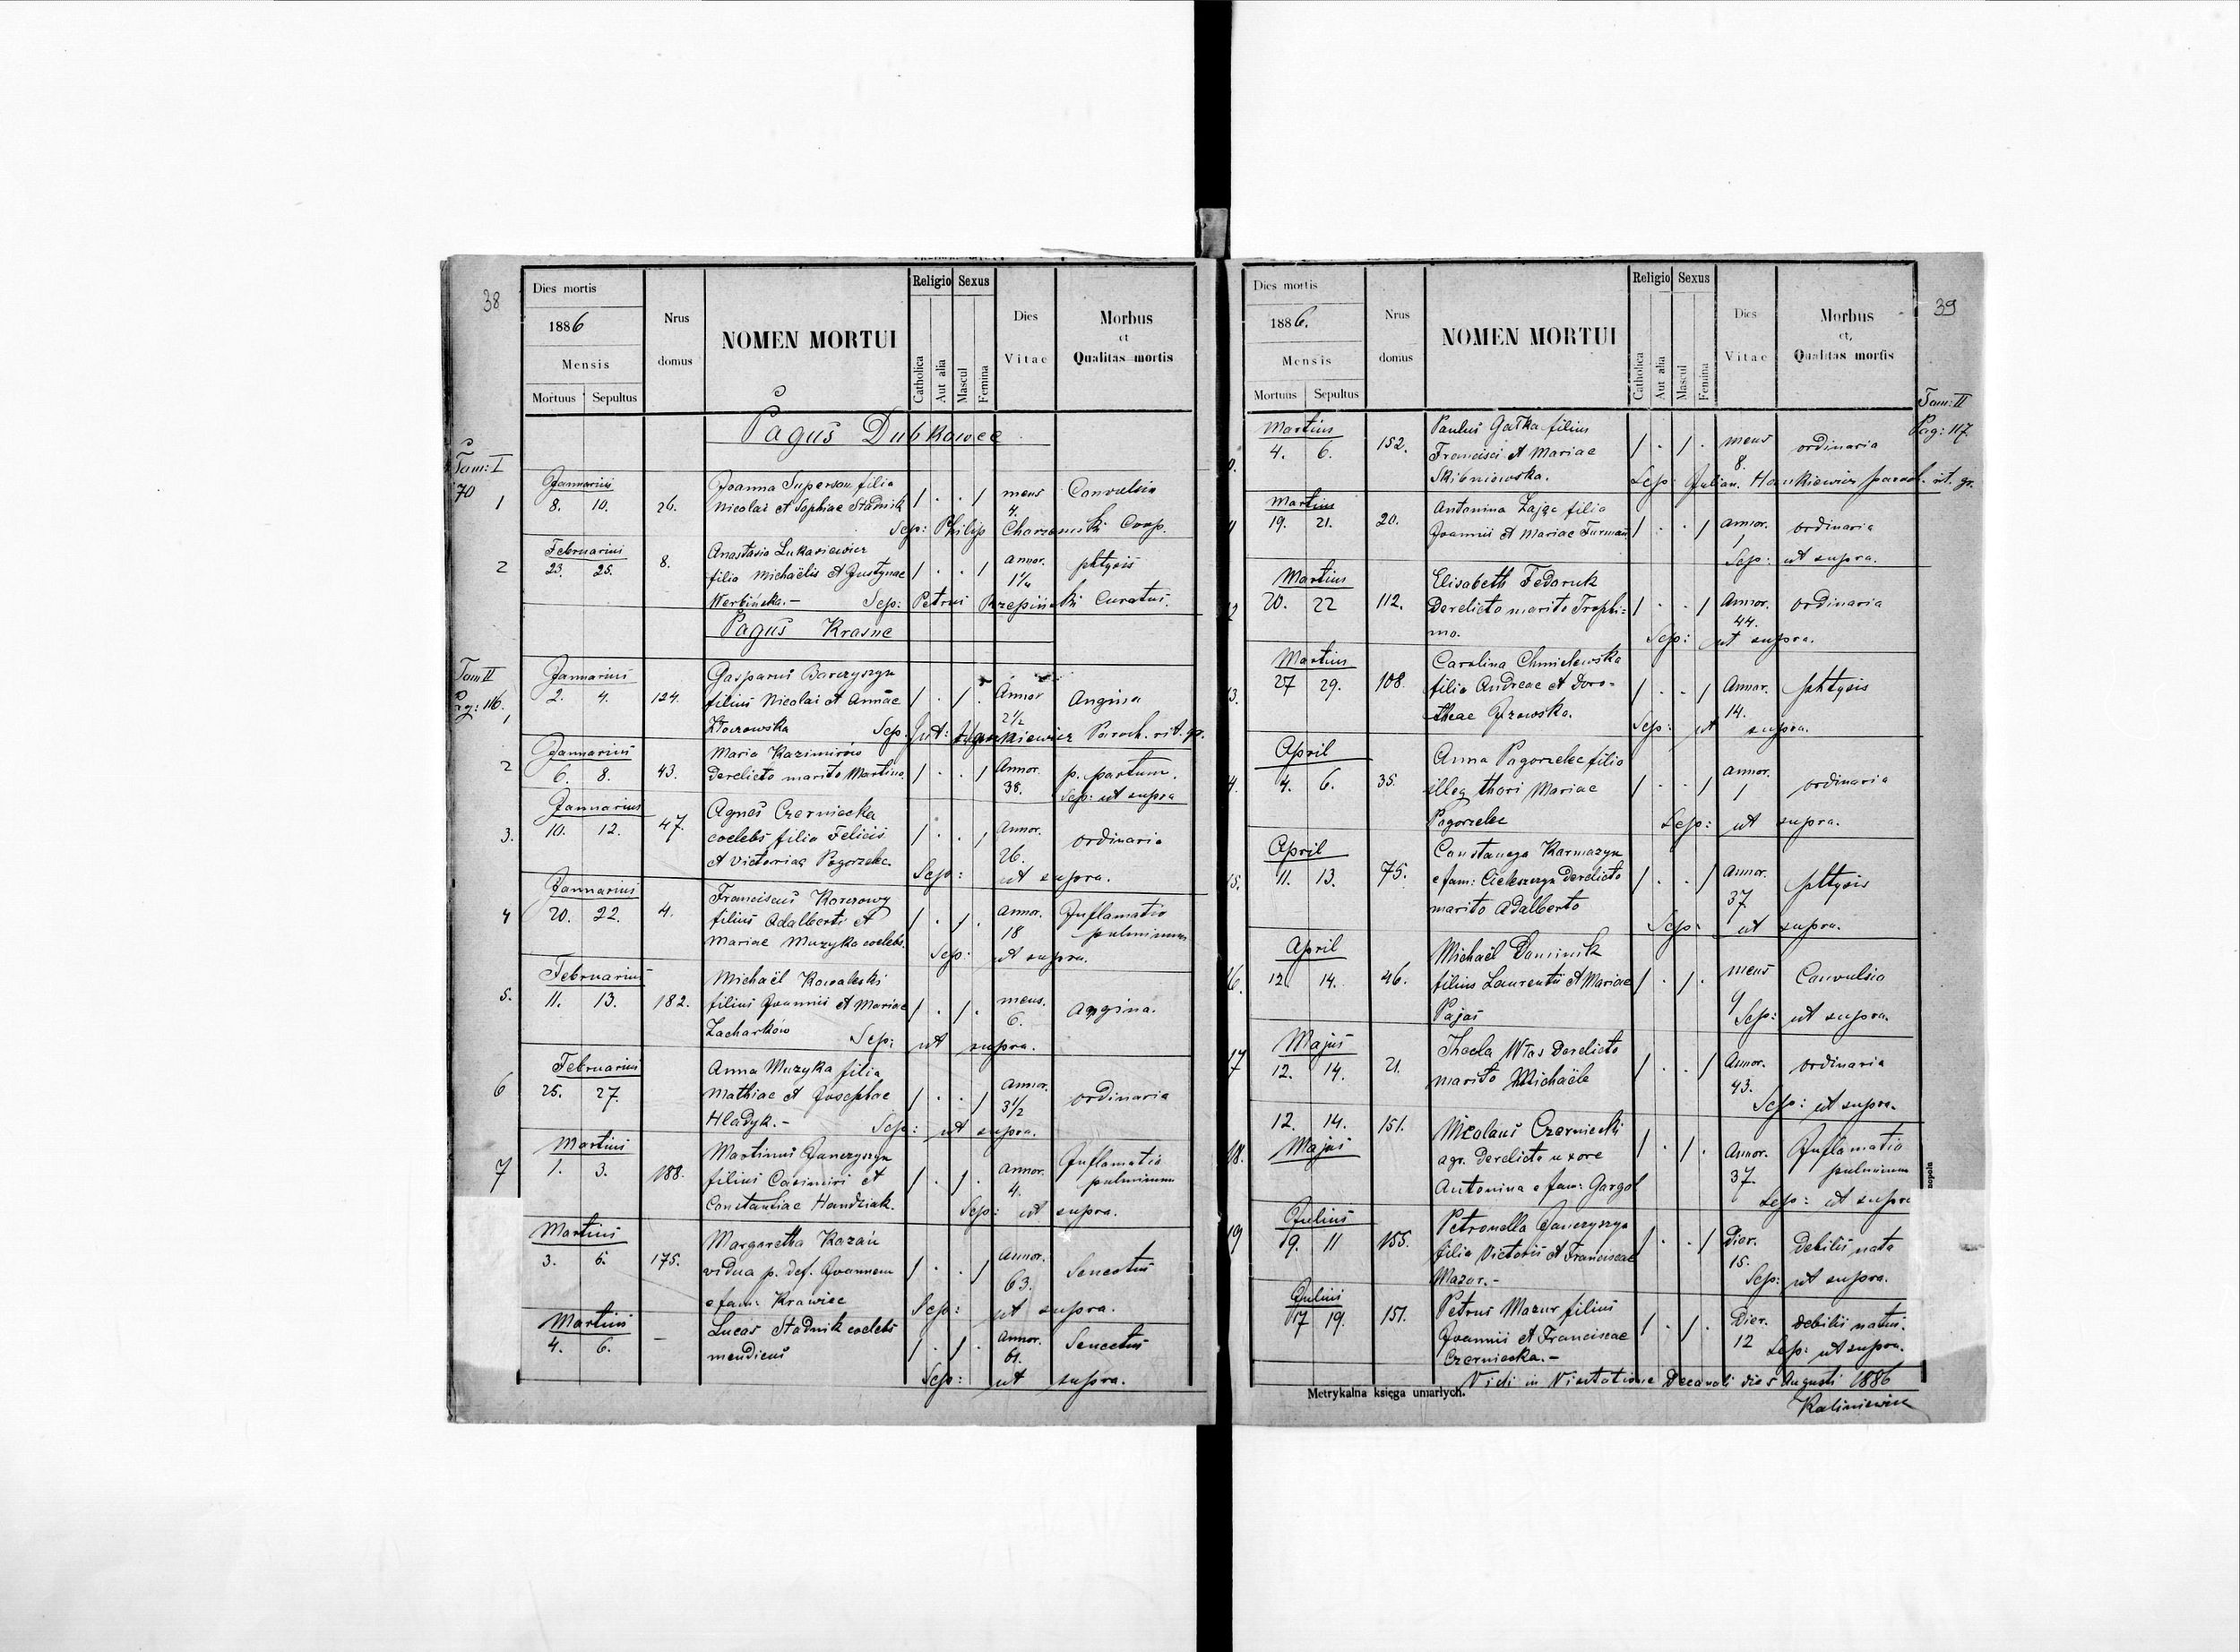 38
Dies mortis
1886
Mensis
Mortuus Sepultus
Nrus domus
NOMEN MORTUI
Religio
Catholica
Aut alia
Sexus
Mascul
Femina
Dies Vitae
Morbus et Qualitas mortis
Pagus Dubkowce
Tom: I
70
1 Januarius
8. 10. 26. Joanna Superson filia
Nicolai et Sophiae Stadnik / . . / mens 4. Convulsio
Sep: Philip Charzewski Coop.
2 Februarius
23. 25. 8. Anastasia Lukasiewicz
filia Michaëlis et Justynae / . . / annor. 1 1/4 phtysis
Werbińska.- Sep: Petrus Rzepiński Curatus.
Pagus Krasne
Tom II
Pag: 116.
1 Januarius
2. 4. 124. Gasparus Barczyszyn
filius Nicolai et Annae / . / . Annor 2 1/2 Angina
Kłoczowska Sep. Jul: Hankiewicz Paroch. rit. gr.
2 Januarius
6. 8. 43. Maria Kazimirów
derelicto marito Martino / . . / Annor. 38. p. partum.
Sep: ut supra
3. Januarius
10. 12. 47. Agnes Czerniecka
coelebs filia Felicis / . . / Annor. 26. ordinaria
et Victoriae Pogorzelec. Sep: ut supra.
4 Januarius
20. 22. 4. Franciscus Korczowy
filius Adalberti et / . / . Annor. 18 Inflamatio pulminum
Mariae Muzyka coelebs. Sep: ut supra.
5. Februarius
11. 13. 182. Michaël Kowalski
filius Joannis et Mariae / . / . mens. 6. Angina.
Zacharków Sep: ut supra.
6 Februarius
25. 27. Anna Muzyka filia
Mathiae et Josephae / . . / Annor. 3 1/2 ordinaria
Hladyk.- Sep: ut supra.
7 Martius
1. 3. 188. Martinus Janczyszyn
filius Casimiri et / . / . Annor. 4. Inflamatio pulminum
Constantiae Handziak. Sep: ut supra.
Martius
3. 5. 175. Margaretha Kazań
vidua p. def. Joannem / . . / Annor. 63. Senectus
e fam: Krawiec Sep: ut supra.
Martius
4. 6. — Lucas Stadnik coelebs
mendicus / . / . Annor. 61. Senectus
Sep: ut supra.
39
Dies mortis
1886.
Mensis
Mortuus Sepultus
Nrus domus
NOMEN MORTUI
Religio
Catholica
Aut alia
Sexus
Mascul
Femina
Dies Vitae
Morbus et, Qualitas mortis
Tom: II
Pag: 117
0. Martius
4. 6. 152. Paulus Gałka filius
Francisci et Mariae / . / . mens 8. ordinaria
Skibniowska. Sep: Julian. Hankiewicz paroch. rit. gr.
Martius
19. 21. 20. Antonina Zając filia
Joannis et Mariae Furman / . . / annor. 1 ordinaria
Sep: ut supra.
2 Martius
20. 22 112. Elisabeth Fedoruk
Derelicto marito Trophi= / . . / Annor. 44. ordinaria
mo. Sep: ut supra.
3. Martius
27 29. 108. Carolina Chmielewska
filia Andreae et Doro- / . . / Annor. 14. phtysis
theae Jzowska. Sep: ut supra.
4. April
4. 6. 35. Anna Pogorzelec filia
illeg thori Mariae / . . / annor. 1 ordinaria
Pogorzelec Sep: ut supra.
5. April
11. 13. 75. Constancya Karmazyn
e fam: Ciekszczyn derelicto / . . / Annor. 37 phtysis
marito Adalberto Sep. ut supra.
6. April
12. 14. 46. Michaël Dominik
filius Laurentii et Mariae / . / . mens 9 Convulsio
Pajaś Sep: ut supra.
17 Majus
12. 14. 21. Thecla Włos derelicto
marito Michaële / . . / Annor. 43. ordinaria
Sep: ut supra.
18. 12. 14. 151. Nicolaus Czerniecki
Majus
agr. derelicta uxore / . / . Annor. 37. Inflamatio pulminum
Antonina e fam: Gargol Sep: ut supra
19 Julius
19. 11 155. Petronella Janczyszyn
filia Victorii et Franciscae / . . / Dier. 15. debilis nata
Mazur.- Sep: ut supra.
Julius
17 19. 151. Petrus Mazur filius
Joannis et Franciscae / . / . Dier. 12 debilis natus.
Czerniecka.- Sep: ut supra.
Vidi in Visitatione Decanali die 5 Augusti 1886
Metrykalna księga umarłych.
Kaliniewicz